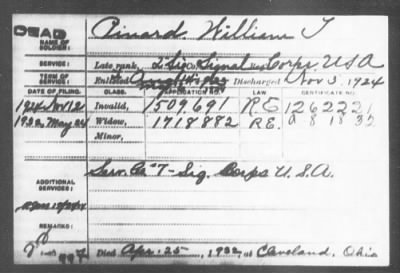 DEAD
NAME OF SOLDIER: Pinard, William T
SERVICE: Late rank, 2 Sig Co Signal Corps, USA
TERM OF SERVICE: Enlisted Discharged Nov 3, 1924
DATE OF FILING. CLASS. APPLICATION NO. LAW CERTIFICATE NO.
1924 Nov 12 Invalid, 1509,691 R.E. 1262221
1932, May 24 Widow, 1718882 RE.
Minor,
ADDITIONAL SERVICES: Serv. Co "T" - Sig. Corps U.S.A.
REMARKS:
Died Apr. 25, 1932, at Cleveland, Ohio